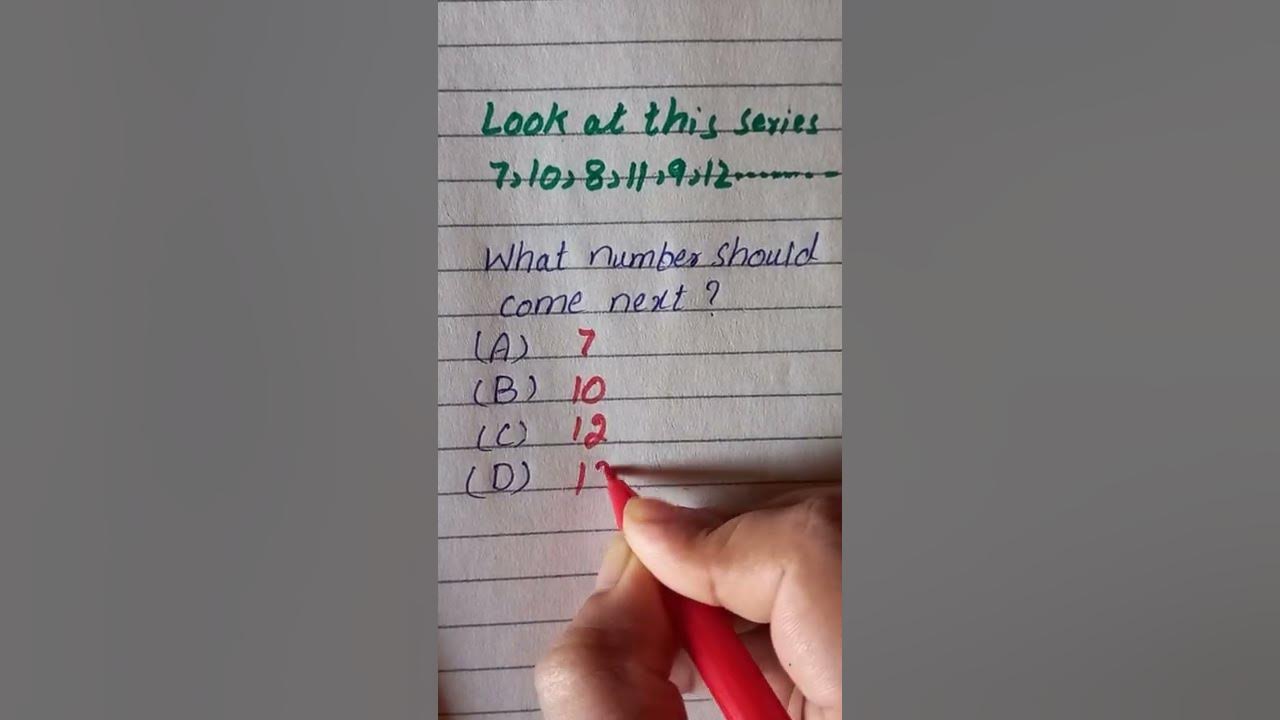 Look at this series
7,10,8,11,9,12..........
What number should
come next?
(A) 7
(B) 10
(C) 12
(D)